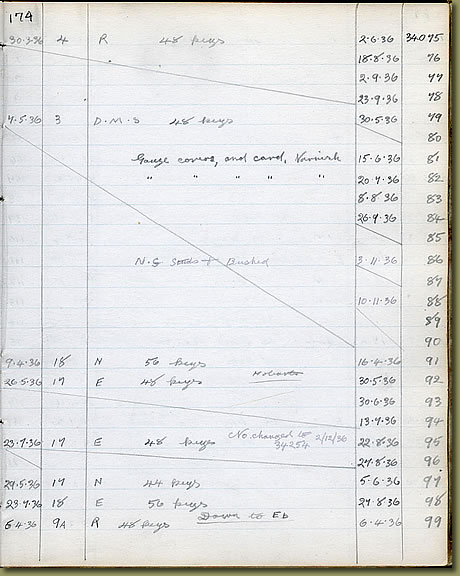 174
30.3.36 4 R 48 keys 2.6.36 34075
18.8.36 76
2.9.36 77
23.9.36 78
7.5.36 3 D.M.S 48 keys 30.5.36 79
80
Gauze covers, and card, Varnish 15.6.36 81
" " " " 20.7.36 82
8.8.36 83
26.9.36 84
85
N.S Studs + Bushed 3.11.36 86
87
10.11.36 88
89
90
9.4.36 18 N 56 keys 16.4.36 91
26.5.36 17 E 48 keys 30.5.36 92
30.6.36 93
13.7.36 94
No. changed to 2/12/36
23.7.36 17 E 48 keys 34254 22.8.36 95
27.8.36 96
29.5.36 17 N 44 keys 5.6.36 97
23.7.36 18 E 56 keys 27.8.36 98
6.4.36 9A R 48 keys Down to Eb 6.4.36 99